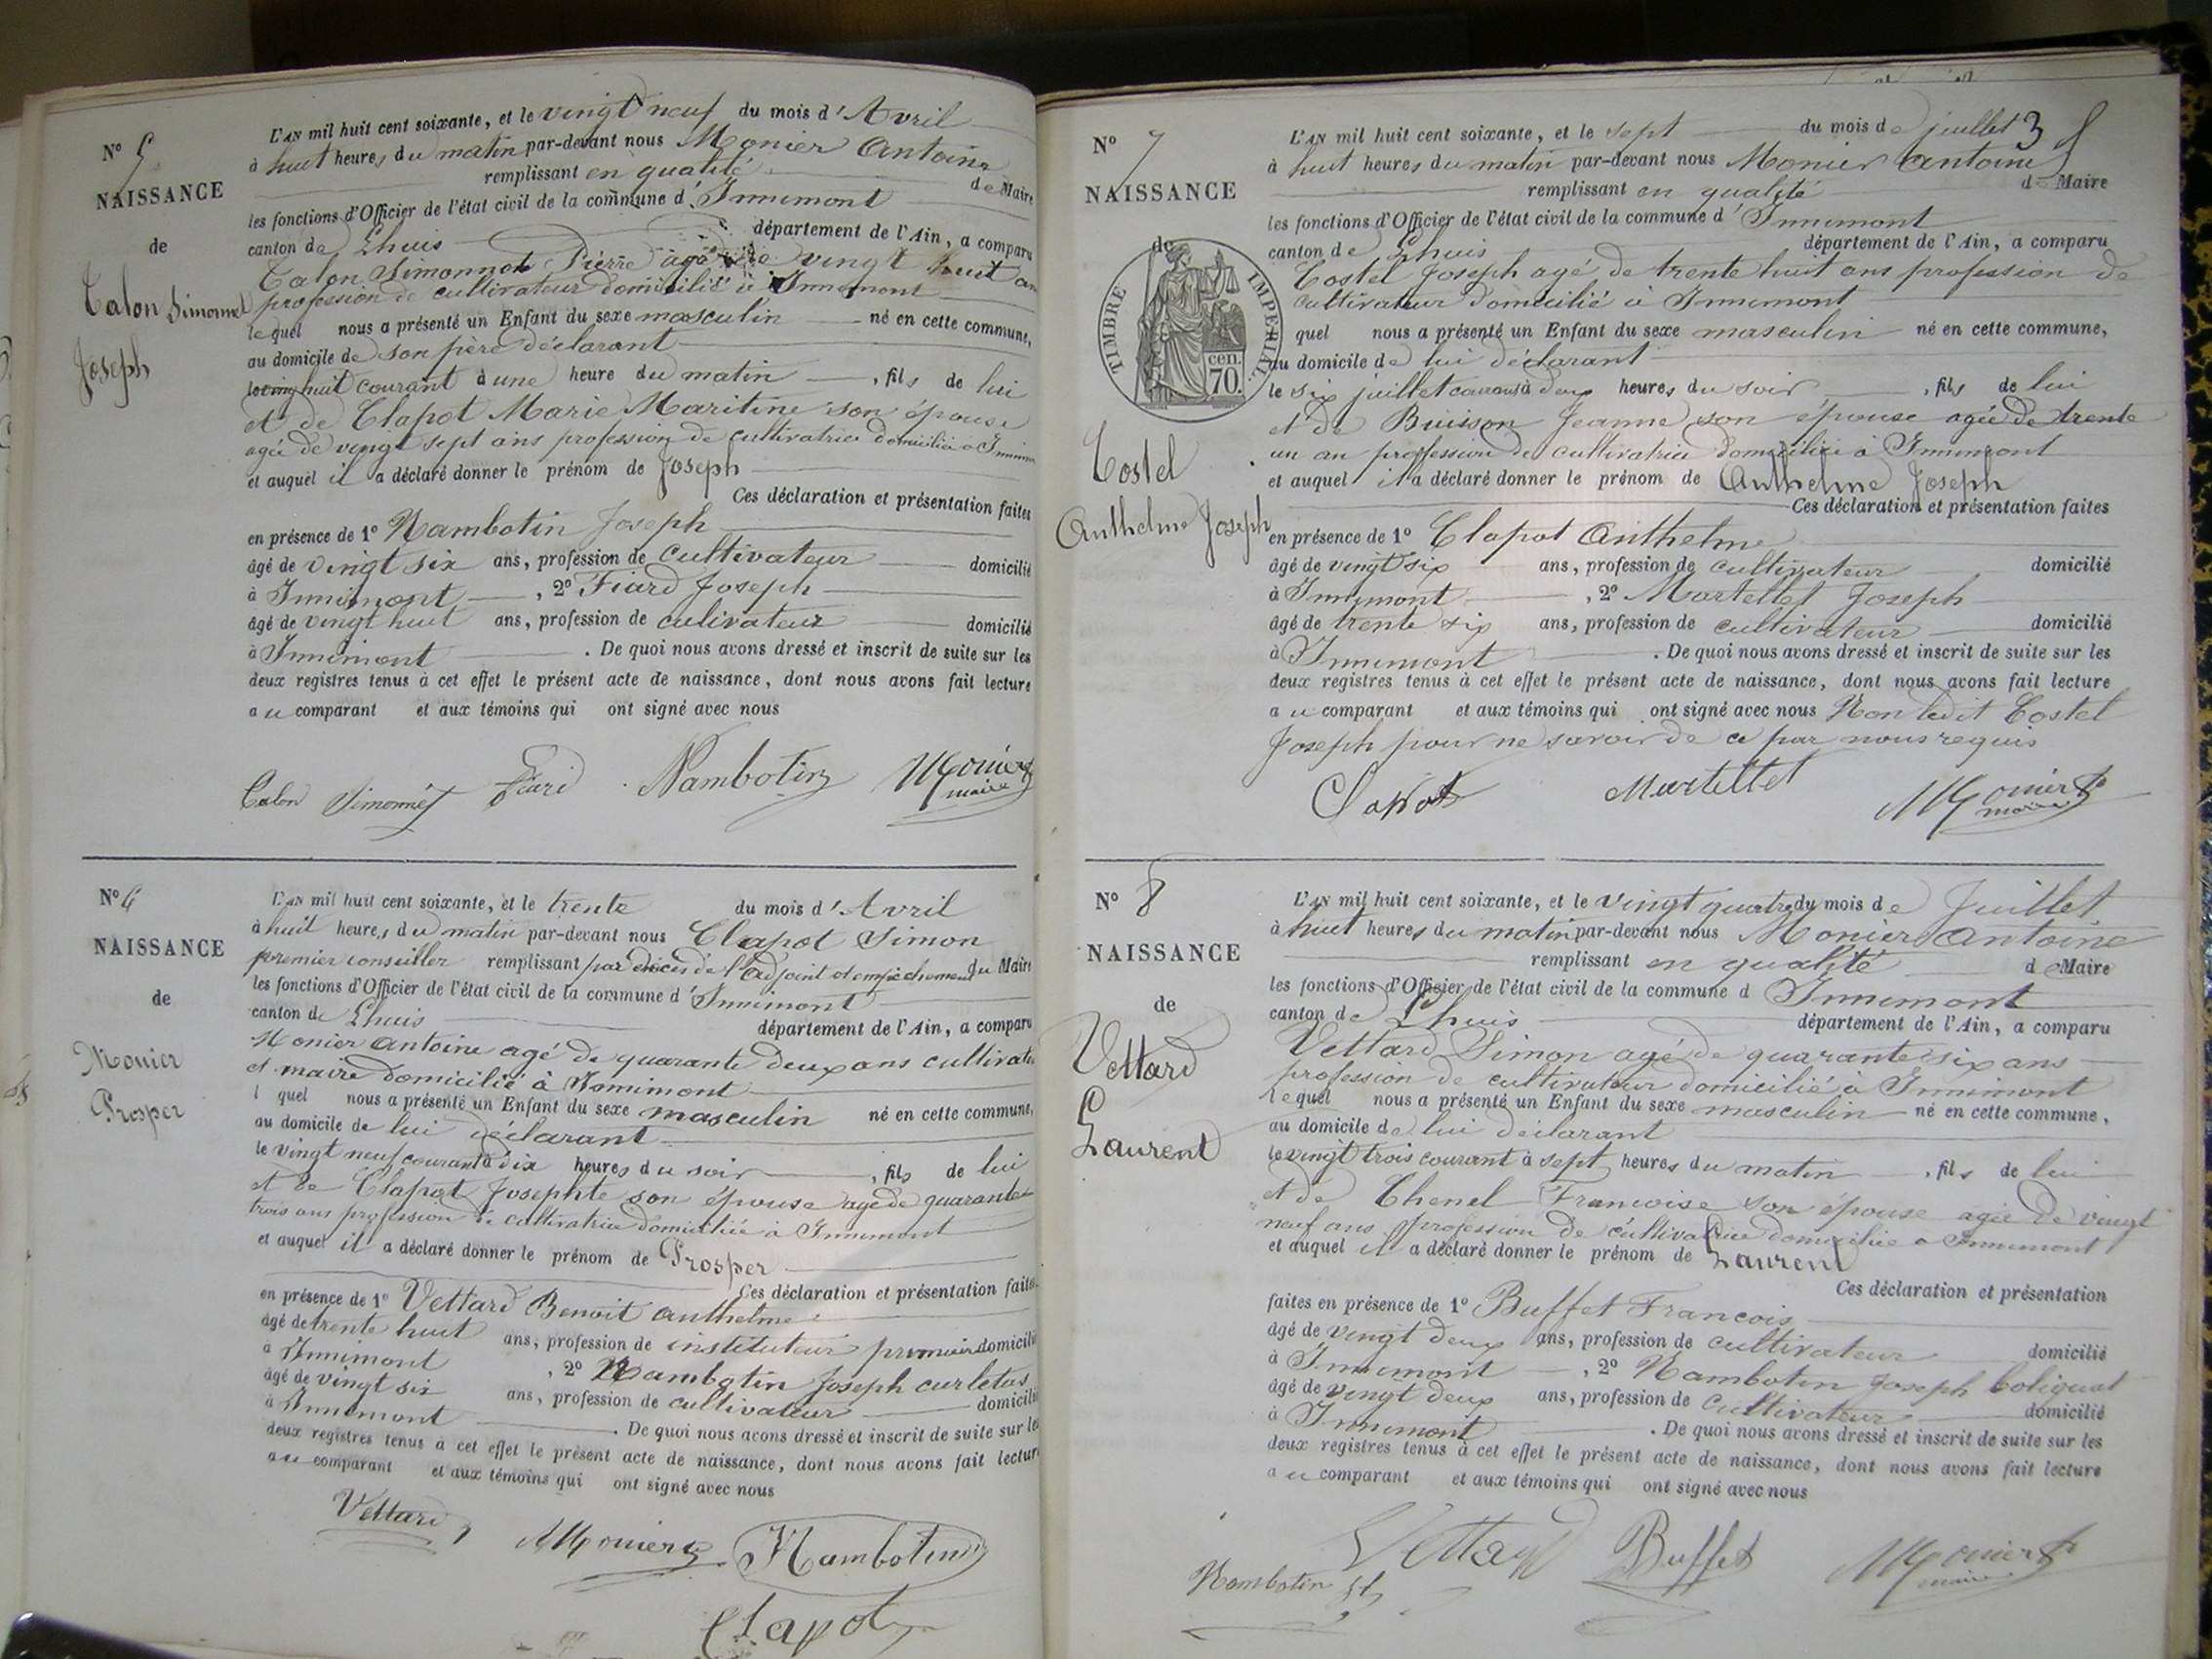 Nº 5
NAISSANCE
de
Calon Simonnet
Joseph
L'AN mil huit cent soixante, et le vingt neuf du mois d'Avril
à huit heures du matin par-devant nous Monier Antoine
remplissant en qualité de Maire
les fonctions d'Officier de l'état civil de la commune d'Innimont
canton de Lhuis département de l'Ain, a comparu
Calon Simonnet Pierre agé de vingt huit ans
profession de cultivateur domicilié à Innimont
lequel nous a présenté un Enfant du sexe masculin né en cette commune,
au domicile de son père déclarant
huit courant à une heure du matin, fils de lui
et de Clapot Marie Maritine son épouse
agée de vingt sept ans profession de cultivatrice domiciliée à Innimont
et auquel il a déclaré donner le prénom de Joseph
Ces déclaration et présentation faites
en présence de 1º Nambotin Joseph
âgé de vingt six ans, profession de cultivateur domicilié
à Innimont, 2º Fiard Joseph
âgé de vingt huit ans, profession de culivateur domicilié
à Innimont. De quoi nous avons dressé et inscrit de suite sur les
deux registres tenus à cet effet le présent acte de naissance, dont nous avons fait lecture
au comparant et aux témoins qui ont signé avec nous
Calon Simonnet Fiard Nambotin Monier
maire
Nº 6
NAISSANCE
de
Monier
Prosper
L'AN mil huit cent soixante, et le trente du mois d'Avril
à huit heures du matin par-devant nous Clapot Simon
premier conseiller remplissant par décès de l'adjoint et empêchement du Maire
les fonctions d'Officier de l'état civil de la commune d'Innimont
canton de Lhuis département de l'Ain, a comparu
Monier Antoine agé de quarante deux ans cultivateur
et maire domicilié à Innimont
l quel nous a présenté un Enfant du sexe masculin né en cette commune,
au domicile de lui déclarant
le vingt neuf courant à dix heures du soir, fils de lui
et de Clapot Josephte son épouse agée de quarante
trois ans profession de cultivatrice domiciliée à Innimont
et auquel il a déclaré donner le prénom de Prosper
Ces déclaration et présentation faites
en présence de 1º Vettard Benoit Anthelme
âgé de trente huit ans, profession de instituteur primaire domicilié
à Innimont, 2º Nambotin Joseph curletas
âgé de vingt six ans, profession de cultivateur domicilié
à Innimont. De quoi nous avons dressé et inscrit de suite sur les
deux registres tenus à cet effet le présent acte de naissance, dont nous avons fait lecture
au comparant et aux témoins qui ont signé avec nous
Vettard Monier Nambotin
Clapot
Nº 7
NAISSANCE
de
TIMBRE IMPERIAL
cen.
70.
Costel
Anthelme Joseph
3
L'AN mil huit cent soixante, et le sept du mois de juillet
à huit heures du matin par-devant nous Monier Antoine
remplissant en qualité de Maire
les fonctions d'Officier de l'état civil de la commune d'Innimont
canton de Lhuis département de l'Ain, a comparu
Costel Joseph agé de trente huit ans profession de
cultivateur domicilié à Innimont
quel nous a présenté un Enfant du sexe masculin né en cette commune,
au domicile de lui déclarant
le six juillet courant à deux heures du soir, fils de lui
et de Buisson Jeanne son épouse agée de trente
un an profession de cultivatrice domiciliée à Innimont
et auquel il a déclaré donner le prénom de Anthelme Joseph
Ces déclaration et présentation faites
en présence de 1º Clapot Anthelme
âgé de vingt six ans, profession de cultivateur domicilié
à Innimont, 2º Martellet Joseph
âgé de trente six ans, profession de cultivateur domicilié
à Innimont. De quoi nous avons dressé et inscrit de suite sur les
deux registres tenus à cet effet le présent acte de naissance, dont nous avons fait lecture
au comparant et aux témoins qui ont signé avec nous Non ledit Costel
Joseph pour ne savoir de ce par nous requis
Clapot Martellet Monier
maire
Nº 8
NAISSANCE
de
Vettard
Laurent
L'AN mil huit cent soixante, et le vingt quatre du mois de Juillet
à huit heures du matin par-devant nous Monier Antoine
remplissant en qualité de Maire
les fonctions d'Officier de l'état civil de la commune d Innimont
canton de Lhuis département de l'Ain, a comparu
Vettard Simon agé de quarante six ans
profession de cultivateur domicilié à Innimont
lequel nous a présenté un Enfant du sexe masculin né en cette commune,
au domicile de lui déclarant
le vingt trois courant à sept heures du matin, fils de lui
et de Chenel Francoise son épouse agée de vingt
neuf ans profession de cultivatrice domiciliée à Innimont
et auquel il a déclaré donner le prénom de Laurent
Ces déclaration et présentation
faites en présence de 1º Buffet Francois
âgé de vingt deux ans, profession de cultivateur domicilié
à Innimont, 2º Nambotin Joseph
âgé de vingt deux ans, profession de cultivateur domicilié
à Innimont. De quoi nous avons dressé et inscrit de suite sur les
deux registres tenus à cet effet le présent acte de naissance, dont nous avons fait lecture
au comparant et aux témoins qui ont signé avec nous
Nambotin Vettard Buffet Monier
maire